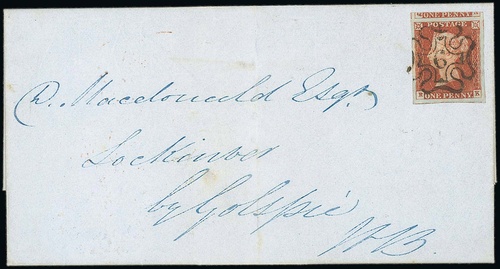 ONE PENNY
POSTAGE
6
ONE PENNY
D. Macdonald Esqr.
Lochinver
by Golspie
N.B.